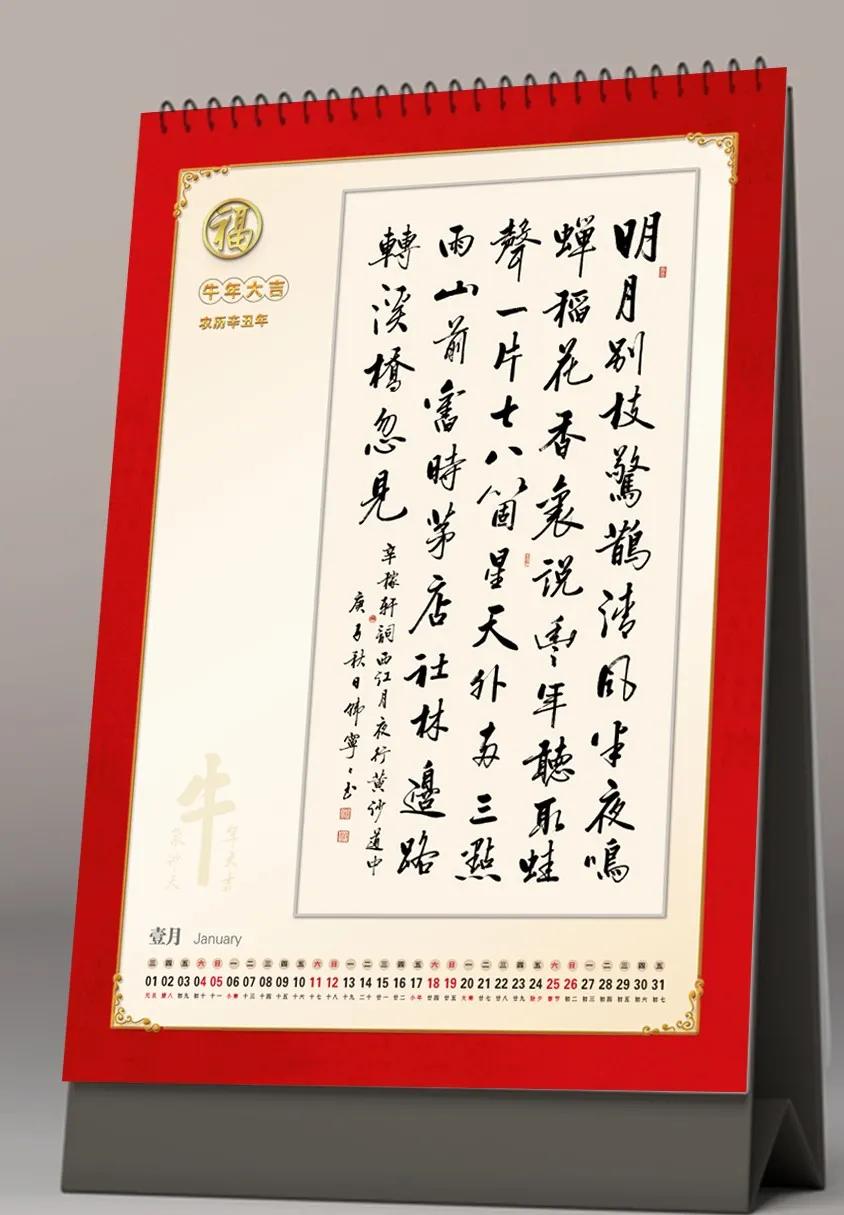 福
牛年大吉
农历辛丑年
明月别枝驚鵲清风半夜鳴
蟬稻花香裏说豐年聽取蛙
聲一片七八箇星天外两三點
雨山前舊時茅店社林邊路
轉溪橋忽見
辛稼軒詞西江月夜行黄沙道中
庚子秋日
牛
年大吉
壹月 January
三 四 五 六 日 一 二 三 四 五 六 日 一 二 三 四 五 六 日 一 二 三 四 五 六 日 一 二 三 四 五
01 02 03 04 05 06 07 08 09 10 11 12 13 14 15 16 17 18 19 20 21 22 23 24 25 26 27 28 29 30 31
元旦 腊八 初九 初十 十一 小寒 十三 十四 十五 十六 十七 十八 十九 二十 廿一 廿二 小年 廿四 廿五 大寒 廿七 廿八 廿九 除夕 春节 初二 初三 初四 初五 初六 初七